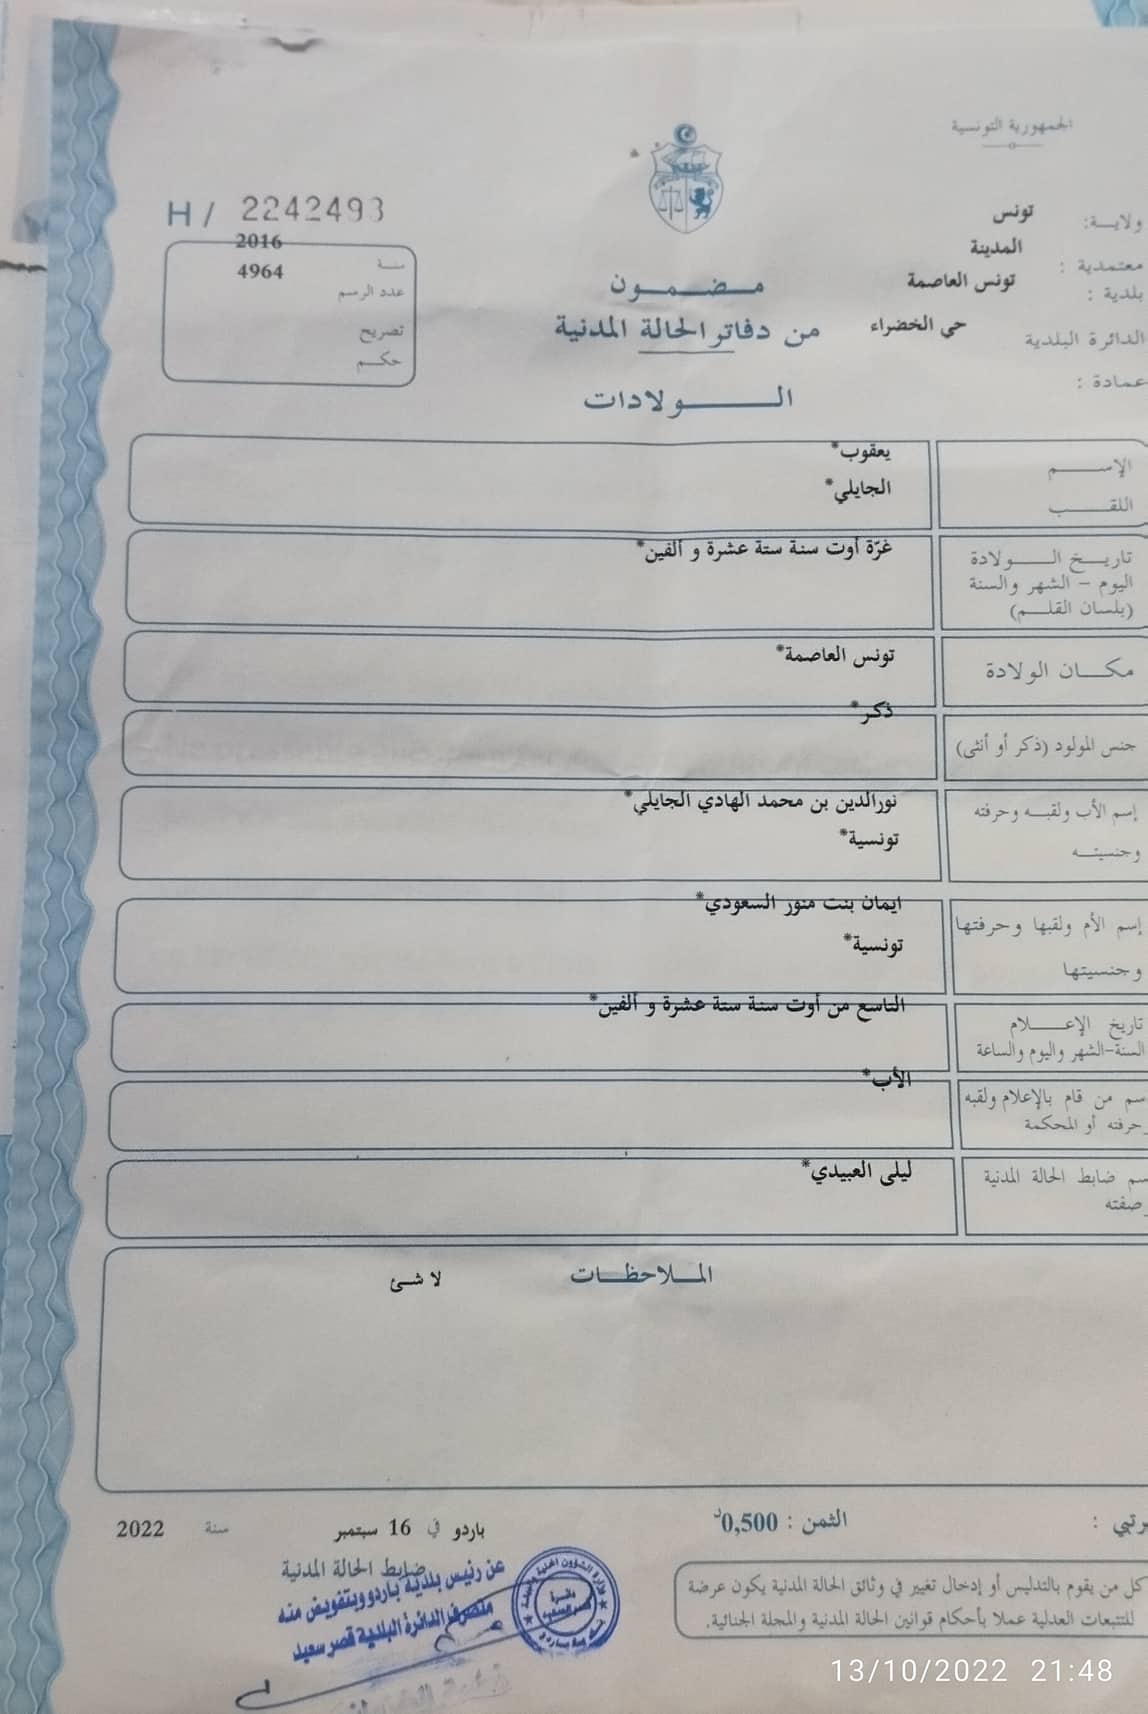 الجمهورية التونسية
ولاية: تونس
معتمدية : المدينة
بلدية : تونس العاصمة
الدائرة البلدية حي الخضراء
عمادة :
H / 2242493
2016 سنة
4964 عدد الرسم
تصريح
حكم
مضمون
من دفاتر الحالة المدنية
الولادات
الإسم يعقوب*
اللقب الجايلي*
تاريخ الولادة غرّة أوت سنة ستة عشرة و ألفين*
اليوم - الشهر والسنة
(بلسان القلم)
مكان الولادة تونس العاصمة*
جنس المولود (ذكر أو أنثى) ذكر*
إسم الأب ولقبه وحرفته نورالدين بن محمد الهادي الجايلي*
وجنسيته تونسية*
إسم الأم ولقبها وحرفتها ايمان بنت منور السعودي*
وجنسيتها تونسية*
تاريخ الإعلام التاسع من أوت سنة ستة عشرة و ألفين*
السنة-الشهر واليوم والساعة
سم من قام بالإعلام ولقبه الأب*
حرفته أو المحكمة
سم ضابط الحالة المدنية ليلى العبيدي*
صفته
الملاحظات لا شئ
رتبي : الثمن : 0,500د
باردو في 16 سبتمبر سنة 2022
ضابط الحالة المدنية
عن رئيس بلدية باردو وبتفويض منه
متصرف الدائرة البلدية قصر سعيد
كل من يقوم بالتدليس أو إدخال تغيير في وثائق الحالة المدنية يكون عرضة
للتتبعات العدلية عملا بأحكام قوانين الحالة المدنية والمجلة الجنائية.
13/10/2022 21:48